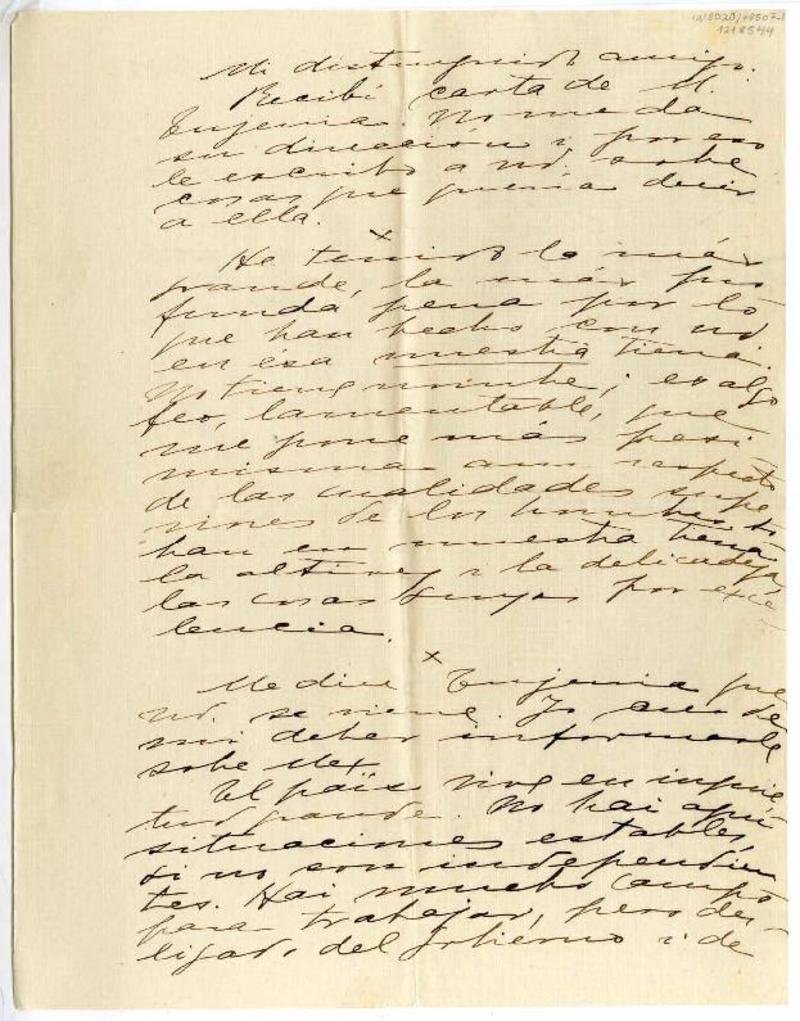 Mi distinguido amigo:
Recibí carta de M.
Eugenia. No me da
su dirección i por eso
le escribo a Ud. sobre
cosas que quería decir
a ella.
x
He tenido la más
grande, la más pro
funda pena por lo
que han hecho con Ud
en esa nuestra tierra.
No tiene nombre; es algo
feo, lamentable, que
me pone más pesi
mista aun respecto
de las cualidades supe
riores de los hombres
han en nuestra tierra
la altivez i la delicadeza,
las cosas suyas por exce
lencia.
x
Me dice Eugenia que
Ud. se viene. Yo creo de
mi deber informarle
sobre Mex.
El país vive en inquie
tud grande. No hai aquí
situaciones estables,
si no son independien
tes. Hai mucho campo
para trabajar, pero des-
ligado del Gobierno i de
1218544